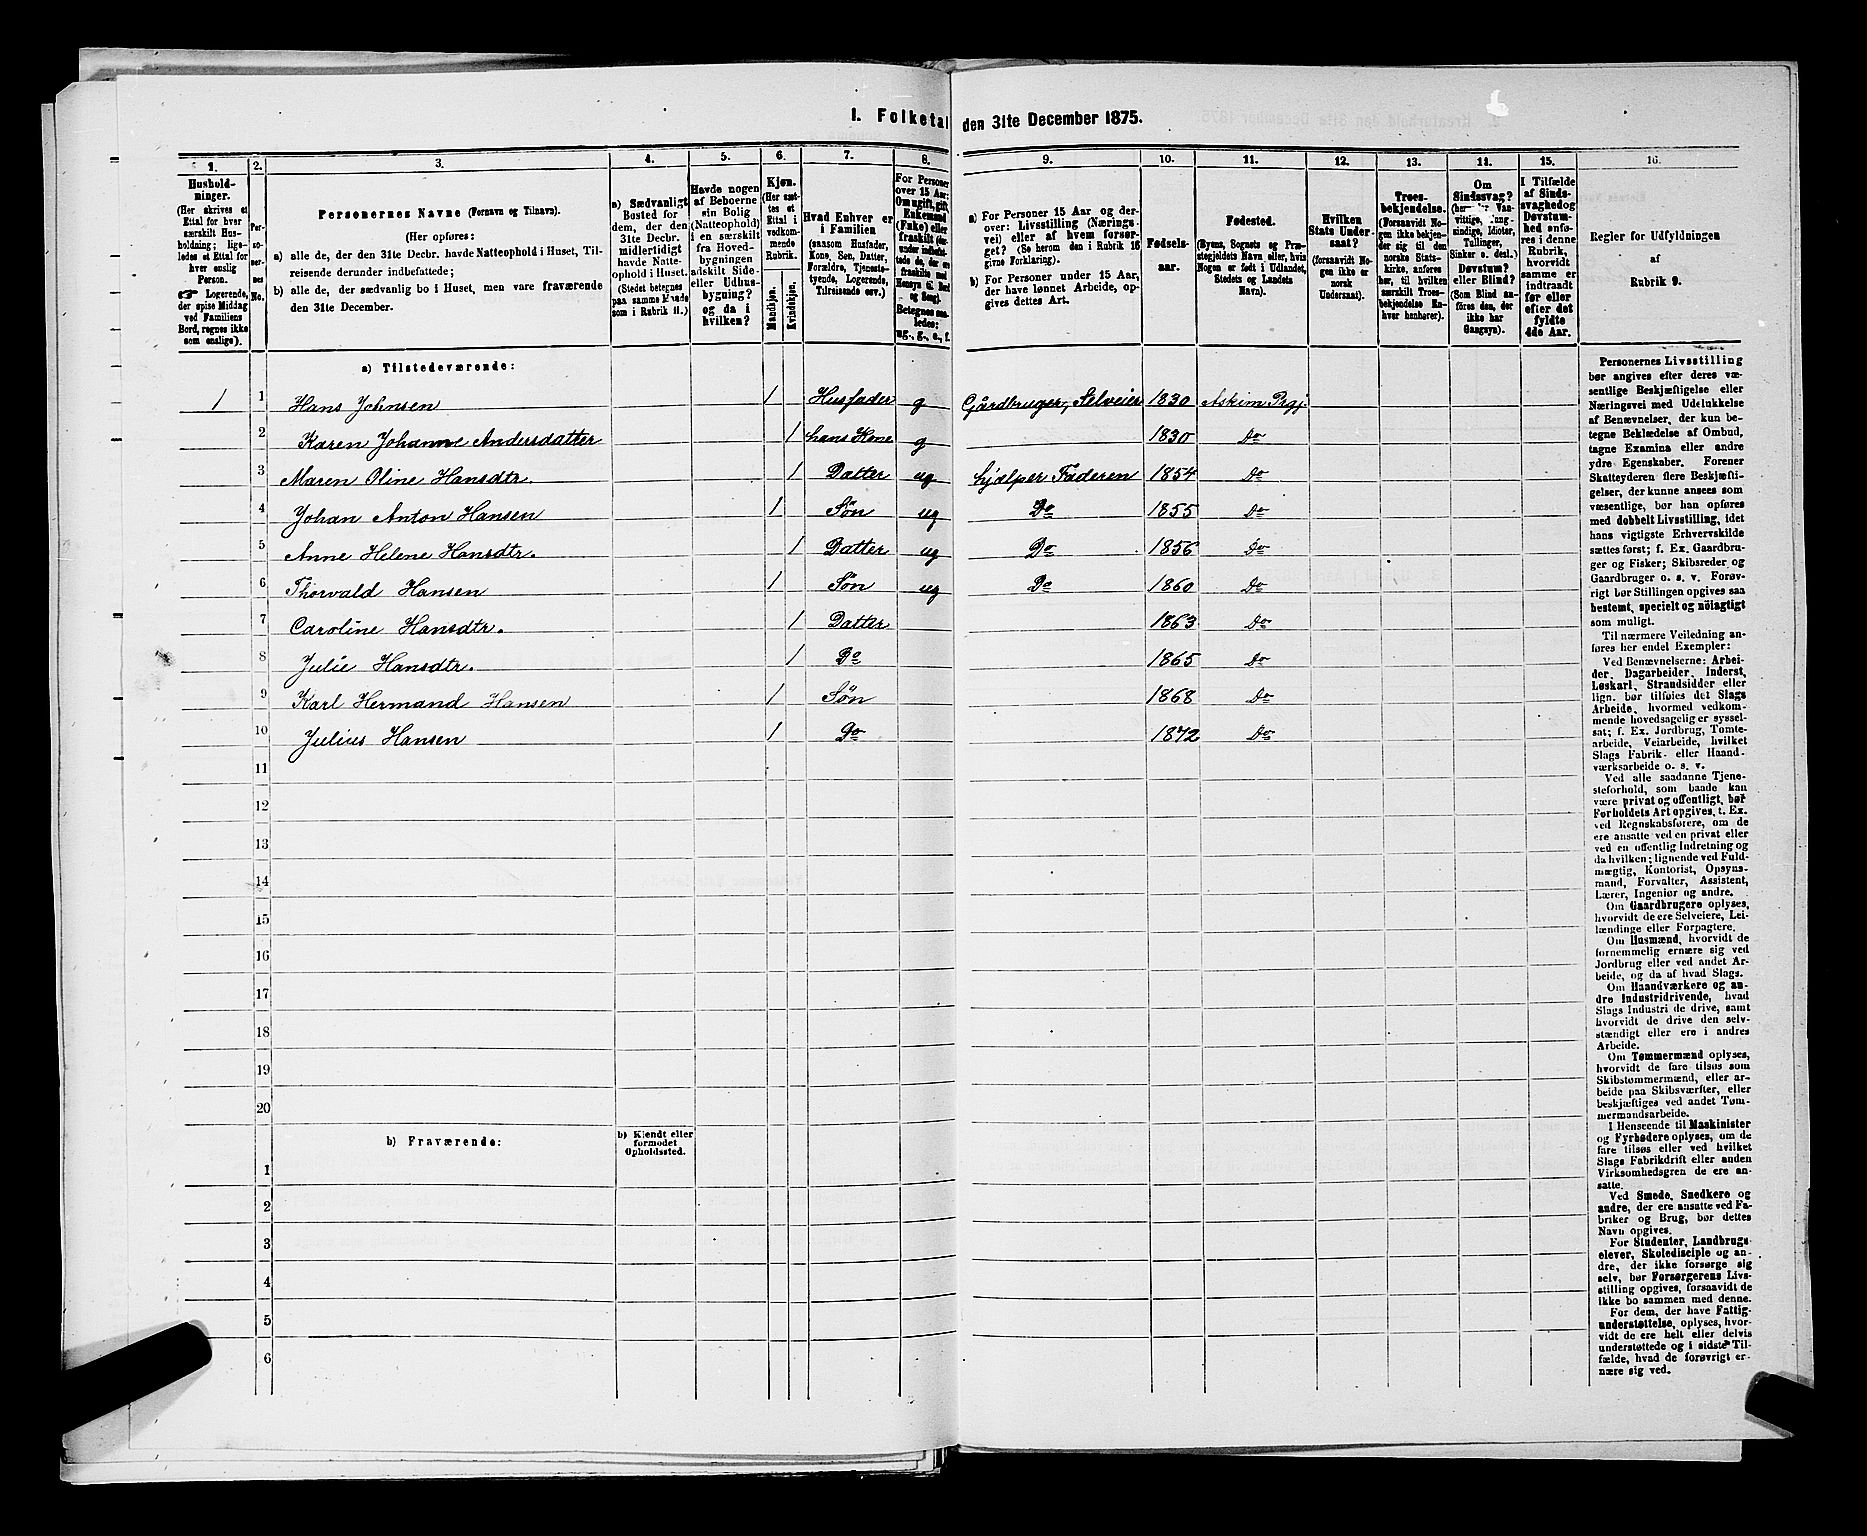 I. Folketal den 31te December 1875.
1. 2. 3. 4. 5. 6. 7. 8. 9. 10. 11. 12. 13. 14. 15. 16.
Hushold-
ninger.
(Her skrives et
Ettal for hver
særskilt Hus-
holdning; lige-
ledes et Ettal for
hver enslig
Person.
☞ Logerende,
der spise Middag
ved Familiens
Bord, regnes ikke
som enslige).
Per-
so-
ner-
nes
No.
Personernes Navne (Fornavn og Tilnavn).
(Her opføres:
a) alle de, der den 31te Decbr. havde Natteophold i Huset, Til-
reisende derunder indbefattede;
b) alle de, der sædvanlig bo i Huset, men vare fraværende
den 31te December.
a) Sædvanligt
Bosted for
dem, der den
31te Decbr.
midlertidigt
havde Natte-
ophold i Huset.
(Stedet betegnes
paa samme Maade
som i Rubrik 11.)
Havde nogen
af Beboerne
sin Bolig
(Natteophold)
i en særskilt
fra Hoved-
bygningen
adskilt Side-
eller Udhus-
bygning?
og da i
hvilken?
Kjøn.
(Her sæt-
tes et
Ettal i
vedkom-
mende
Rubrik.
Mandkjøn.
Kvindekjøn.
Hvad Enhver er
i Familien
(saasom Husfader,
Kone, Søn, Datter,
Forældre, Tjeneste-
tyende, Logerende,
Tilreisende osv.)
For Personer
over 15 Aar:
Om ugift, gift,
Enkemand
(Enke) eller
fraskilt
Betegnes saa-
ledes:
ug., g., e., f.
a) For Personer 15 Aar og der-
over: Livsstilling (Nærings-
vei) eller af hvem forsør-
get? (Se herom den i Rubrik 16
givne Forklaring).
b) For Personer under 15 Aar,
der have lønnet Arbeide, op-
gives dettes Art.
Fødsels-
aar.
Fødested.
(Byens, Sognets og Præ-
stegjeldets Navn eller, hvis
Nogen er født i Udlandet,
Stedets og Landets
Navn).
Hvilken
Stats Under-
saat?
(forsaavidt No-
gen ikke er
norsk
Undersaat).
Troes-
bekjendelse.
(Forsaavidt No-
gen ikke bekjen-
der sig til den
norske Stats-
kirke, anføres
her, til hvilken
særskilt Troes-
bekjendelse En-
hver henhører).
Om
Sindssvag?
sindige, Idioter,
Tullinger,
Sinker o. desl.)
Døvstum?
eller Blind?
(Som Blind an-
føres den, der
ikke har
Gangsyn).
I Tilfælde
af Sinds-
svaghed og
Døvstum-
hed anfø-
res i denne
Rubrik,
hvorvidt
samme er
indtraadt
før eller
efter det
fyldte
4de Aar.
Regler for Udfyldningen
af
Rubrik 9.
a) Tilstedeværende:
1 1 Hans Johnsen 1 Husfader g Gårdbruger, Selveier 1830 Askim Prgj.
2 Karen Johanne Andersdatter 1 hans Kone g 1830 Do
3 Maren Oline Hansdtr. 1 Datter ug hjælper Faderen 1854 Do
4 Johan Anton Hansen 1 Søn ug Do 1855 Do
5 Anne Helene Hansdtr. 1 Datter ug Do 1856 Do
6 Thorvald Hansen 1 Søn ug Do 1860 Do
7 Caroline Hansdtr. 1 Datter 1863 Do
8 Julie Hansdtr. 1 Do 1865 Do
9 Karl Hermand Hansen 1 Søn 1868 Do
10 Julius Hansen 1 Do 1872 Do
11
12
13
14
15
16
17
18
19
20
b) Fraværende:
b) Kjendt eller
formodet
Opholdssted.
1
2
3
4
5
6
Personernes Livsstilling
bør angives efter deres væ-
sentlige Beskjæftigelse eller
Næringsvei med Udelukkelse
af Benævnelser, der kun be-
tegne Beklædelse af Ombud,
tagne Examina eller andre
ydre Egenskaber. Forener
Skatteyderen flere Beskjæfti-
gelser, der kunne ansees som
væsentlige, bør han opføres
med dobbelt Livsstilling, idet
hans vigtigste Erhvervskilde
sættes først; f. Ex. Gaardbru-
ger og Fisker; Skibsreder og
Gaardbruger o. s. v. Forøv-
rigt bør Stillingen opgives saa
bestemt, specielt og nöiagtigt
som muligt.
Til nærmere Veiledning an-
føres her endel Exempler:
Ved Benævnelserne: Arbei-
der, Dagarbeider, Inderst,
Løskarl, Strandsidder eller
lign. bør tilføies det Slags
Arbeide, hvormed vedkom-
mende hovedsagelig er syssel-
sat; f. Ex. Jordbrug, Tømte-
arbeide, Veiarbeide, hvilket
Slags Fabrik- eller Haand-
værksarbeide o. s. v.
Ved alle saadanne Tjene-
steforhold, som baade kan
være privat og offentligt, bør
Forholdets Art opgives, t. Ex.
ved Regnskabsførere, om de
ere ansatte ved en privat eller
ved en offentlig Indretning og
da hvilken; lignende ved Fuld-
mægtig, Kontorist, Opsyns-
mand, Forvalter, Assistent,
Lærer, Ingeniør og andre.
Om Gaardbrugere oplyses,
hvorvidt de ere Selveiere, Lei-
lændinge eller Forpagtere.
Om Husmænd, hvorvidt de
fornemmelig ernære sig ved
Jordbrug eller ved andet Ar-
beide, og da af hvad Slags.
Om Haandværkere og an-
dre Industridrivende, hvad
Slags Industri de drive, samt
hvorvidt de drive den selv-
stændigt eller ere i andres
Arbeide.
Om Tømmermænd oplyses,
hvorvidt de fare tilsøs som
Skibstømmermænd, eller ar-
beide paa Skibsværfter, eller
beskjæftiges ved andet Tøm-
mermandsarbeide.
I Henseende til Maskinister
og Fyrbødere oplyses, om de
fare tilsøs eller ved hvilket
Slags Fabrikdrift eller anden
Virksomhedsgren de ere an-
satte.
Ved Smede, Snedkere og
andre, der ere ansatte ved Fa-
briker og Brug, bør dettes
Navn opgives.
For Studenter, Landbrugs-
elever, Skoledisciple og an-
dre, der ikke forsørge sig
selv, bør Forsørgerens Livs-
stilling opgives, forsaavidt de
ikke bo sammen med denne.
For dem, der have Fattig-
understøttelse, oplyses, hvor-
vidt de ere helt eller delvis
understøttede og i sidste Til-
fælde, hvad de forøvrigt er-
nære sig ved.